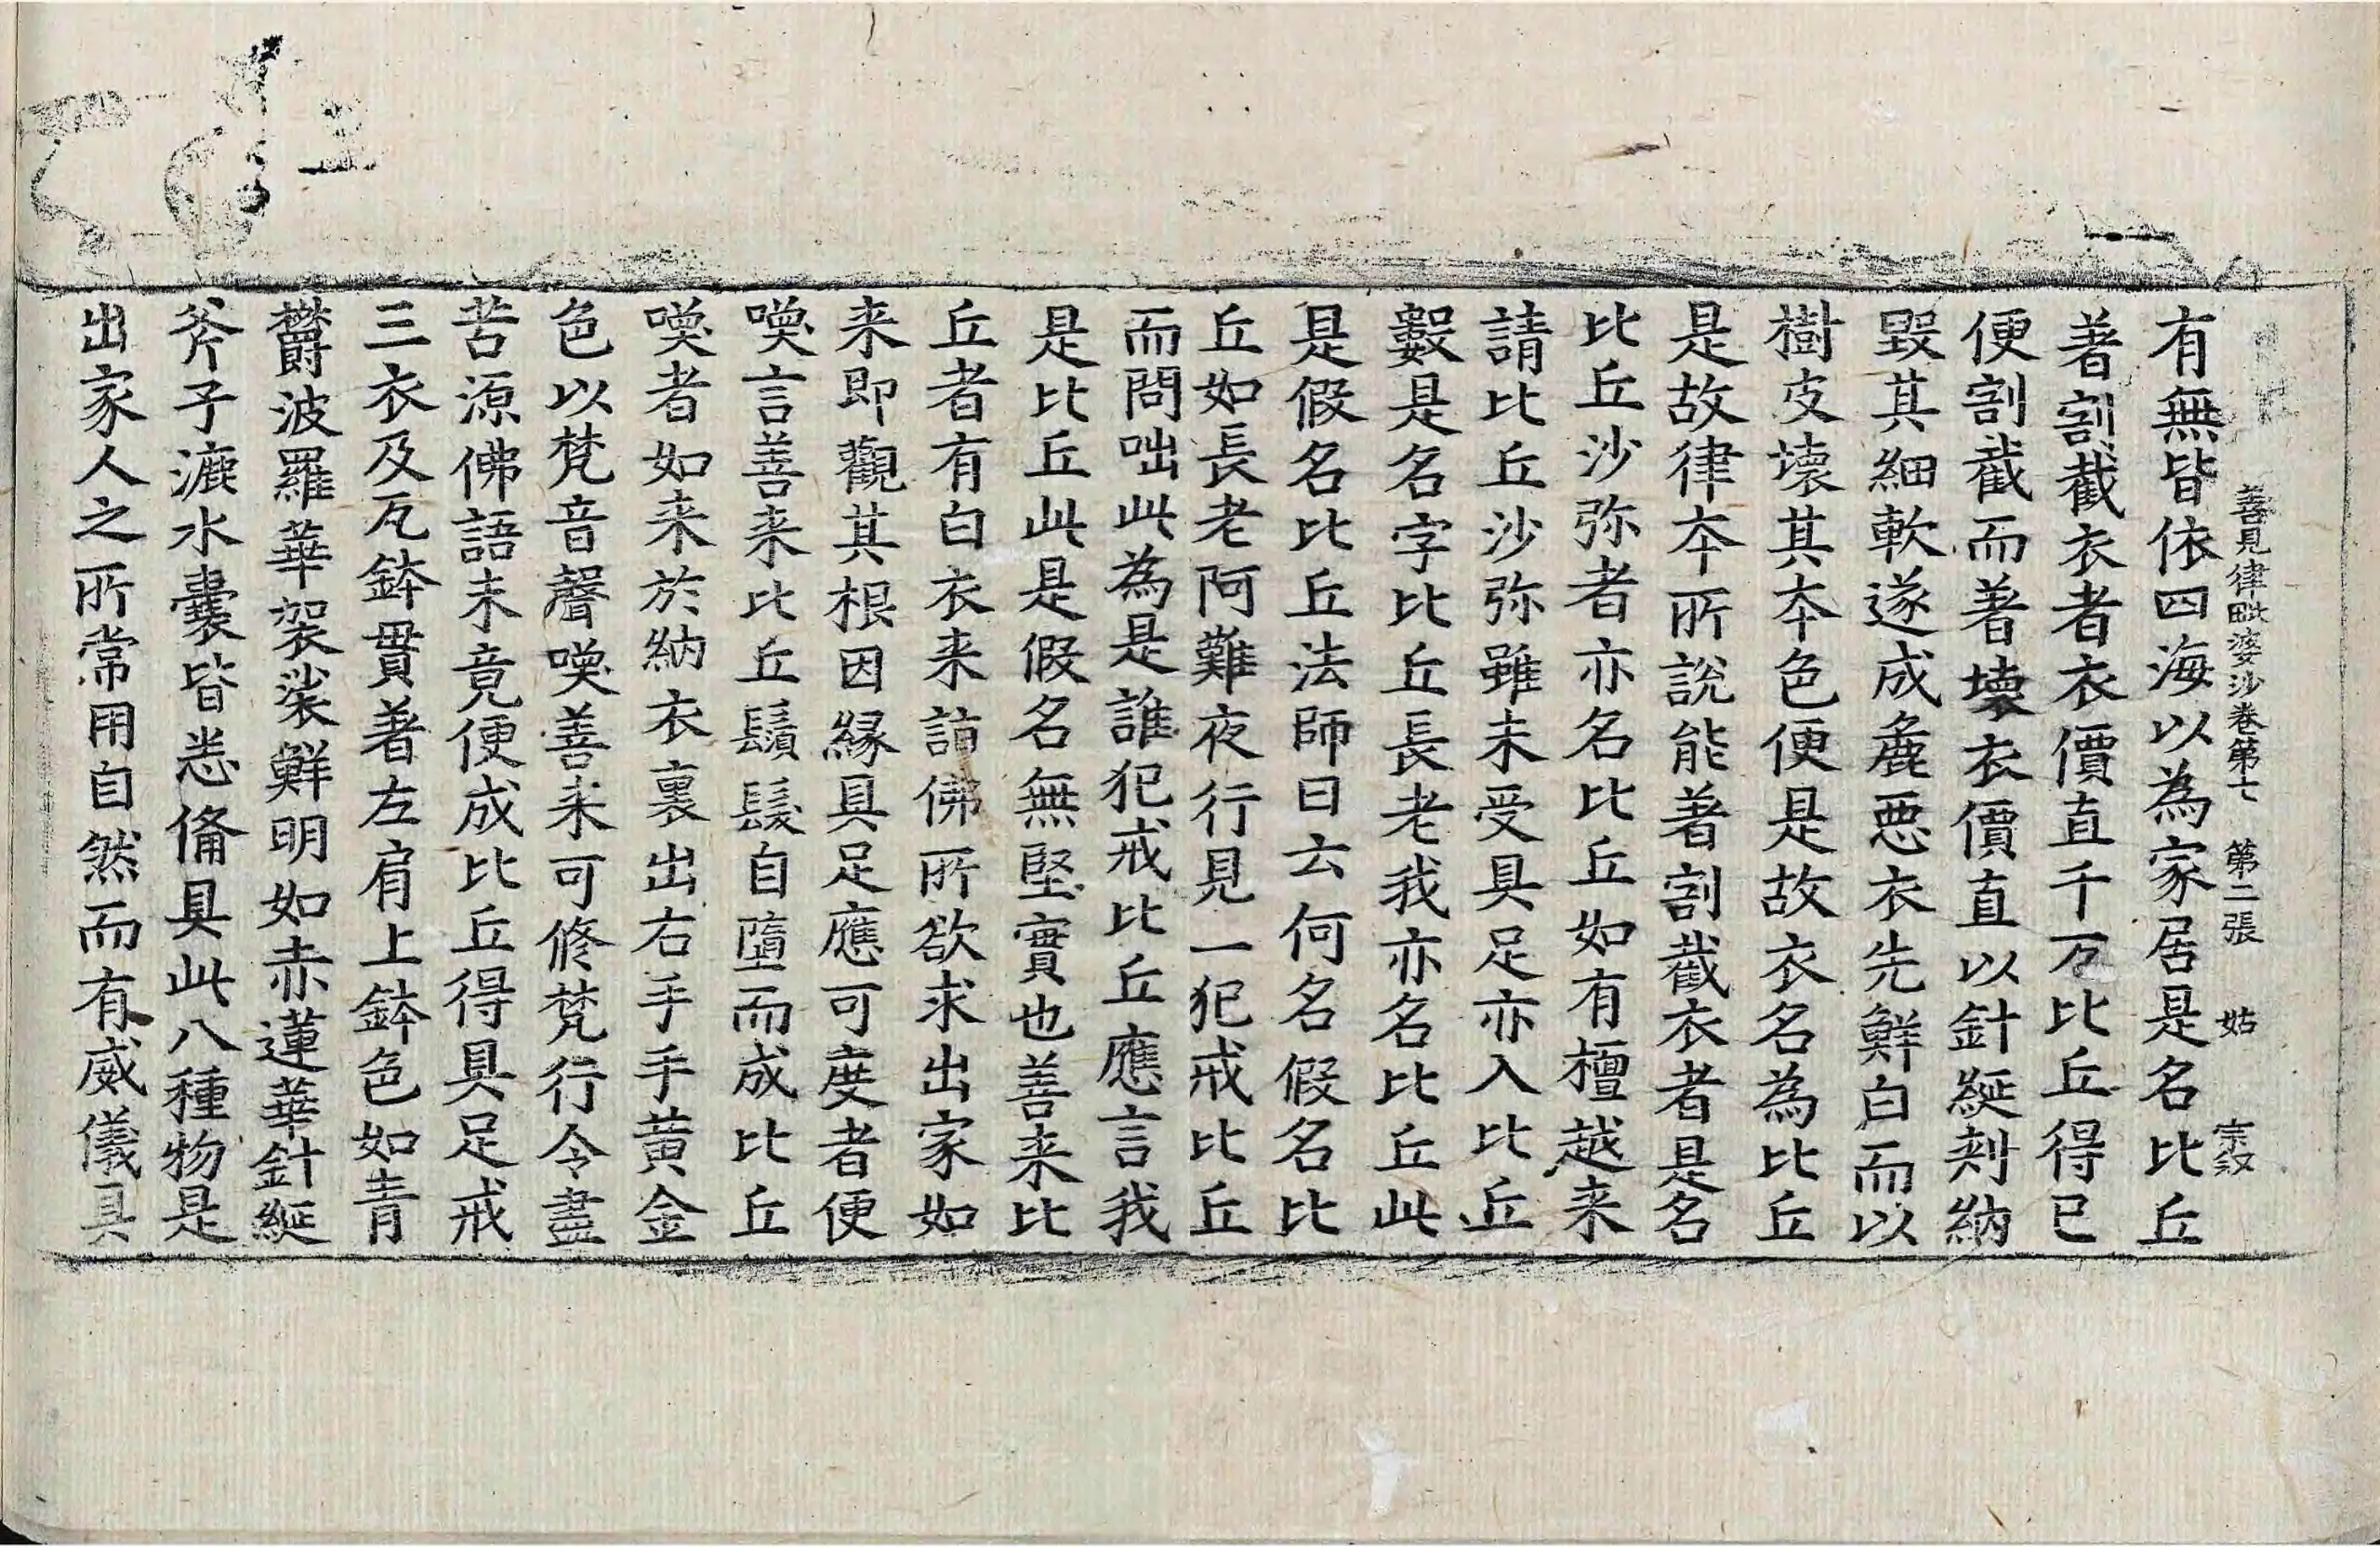 善見律毗婆沙卷第七 第二張 姑
有無皆依四海以為家居是名比丘
著割截衣者衣價直千万比丘得已
便割截而著壞衣價直以針綖刾納
毀其細軟遂成麁惡衣先鮮白而以
樹皮壞其本色便是故衣名為比丘
是故律本所說能著割截衣者是名
比丘沙弥者亦名比丘如有檀越来
請比丘沙弥雖未受具足亦入比丘
數是名字比丘長老我亦名比丘此
是假名比丘法師曰云何名假名比
丘如長老阿難夜行見一犯戒比丘
而問咄此為是誰犯戒比丘應言我
是比丘此是假名無堅實也善来比
丘者有白衣来詣佛所欲求出家如
来即觀其根因縁具足應可度者便
喚言善来比丘鬚髮自墮而成比丘
喚者如来於納衣裏出右手手黄金
色以梵音聲喚善来可修梵行令盡
苦源佛語未竟便成比丘得具足戒
三衣及瓦鉢貫著左肩上鉢色如青
欝波羅華袈裟鮮明如赤蓮華針綖
斧子漉水囊皆悉俻具此八種物是
出家人之所常用自然而有威儀具